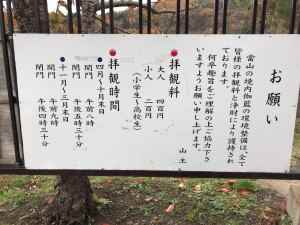 お願い
当山の境内伽藍の環境整備は、全て
皆様の拝観料と浄財により護持され
ております。
何卒趣旨をご理解の上ご協力下さ
いますようお願い申し上げます。
山主
●拝観料
大人 四百円
小人 二百円
(小学生〜高校生)
●拝観時間
●四月〜十月末日
開門 午前八時
閉門 午後五時三十分
●十一月〜三月末日
開門 午前九時
閉門 午後四時三十分